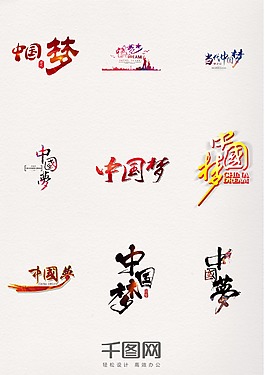 中国梦
中国梦
DREAM
当代中国梦
中國夢
中国梦
中國梦
CHINA
DREAM
中國夢
中国梦
中國夢
千图网
轻松设计 高效办公